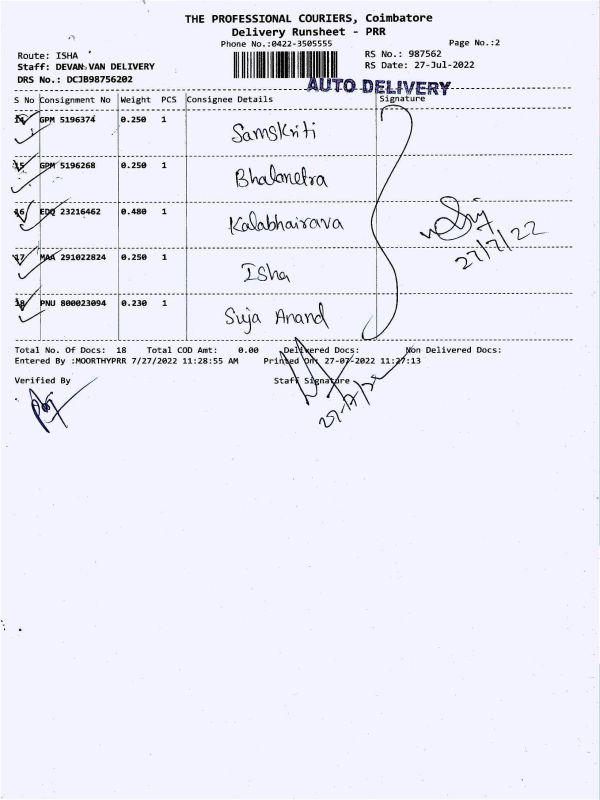 THE PROFESSIONAL COURIERS, Coimbatore
Delivery Runsheet - PRR
Phone No.:0422-3505555 Page No.:2
Route: ISHA RS No.: 987562
Staff: DEVAN VAN DELIVERY RS Date: 27-Jul-2022
DRS No.: DCJB98756202
AUTO DELIVERY
S No Consignment No Weight PCS Consignee Details Signature
14 GPM 5196374 0.250 1 Samskriti
15 GPM 5196268 0.250 1 Bhalanetra
16 EDQ 23216462 0.480 1 Kalabhairava
27/7/22
17 MAA 291022824 0.250 1 Isha
18 PNU 800023094 0.230 1 Suja Anand
Total No. Of Docs: 18 Total COD Amt: 0.00 Delivered Docs: Non Delivered Docs:
Entered By :MOORTHYPRR 7/27/2022 11:28:55 AM Printed On: 27-07-2022 11:27:13
Verified By Staff Signature